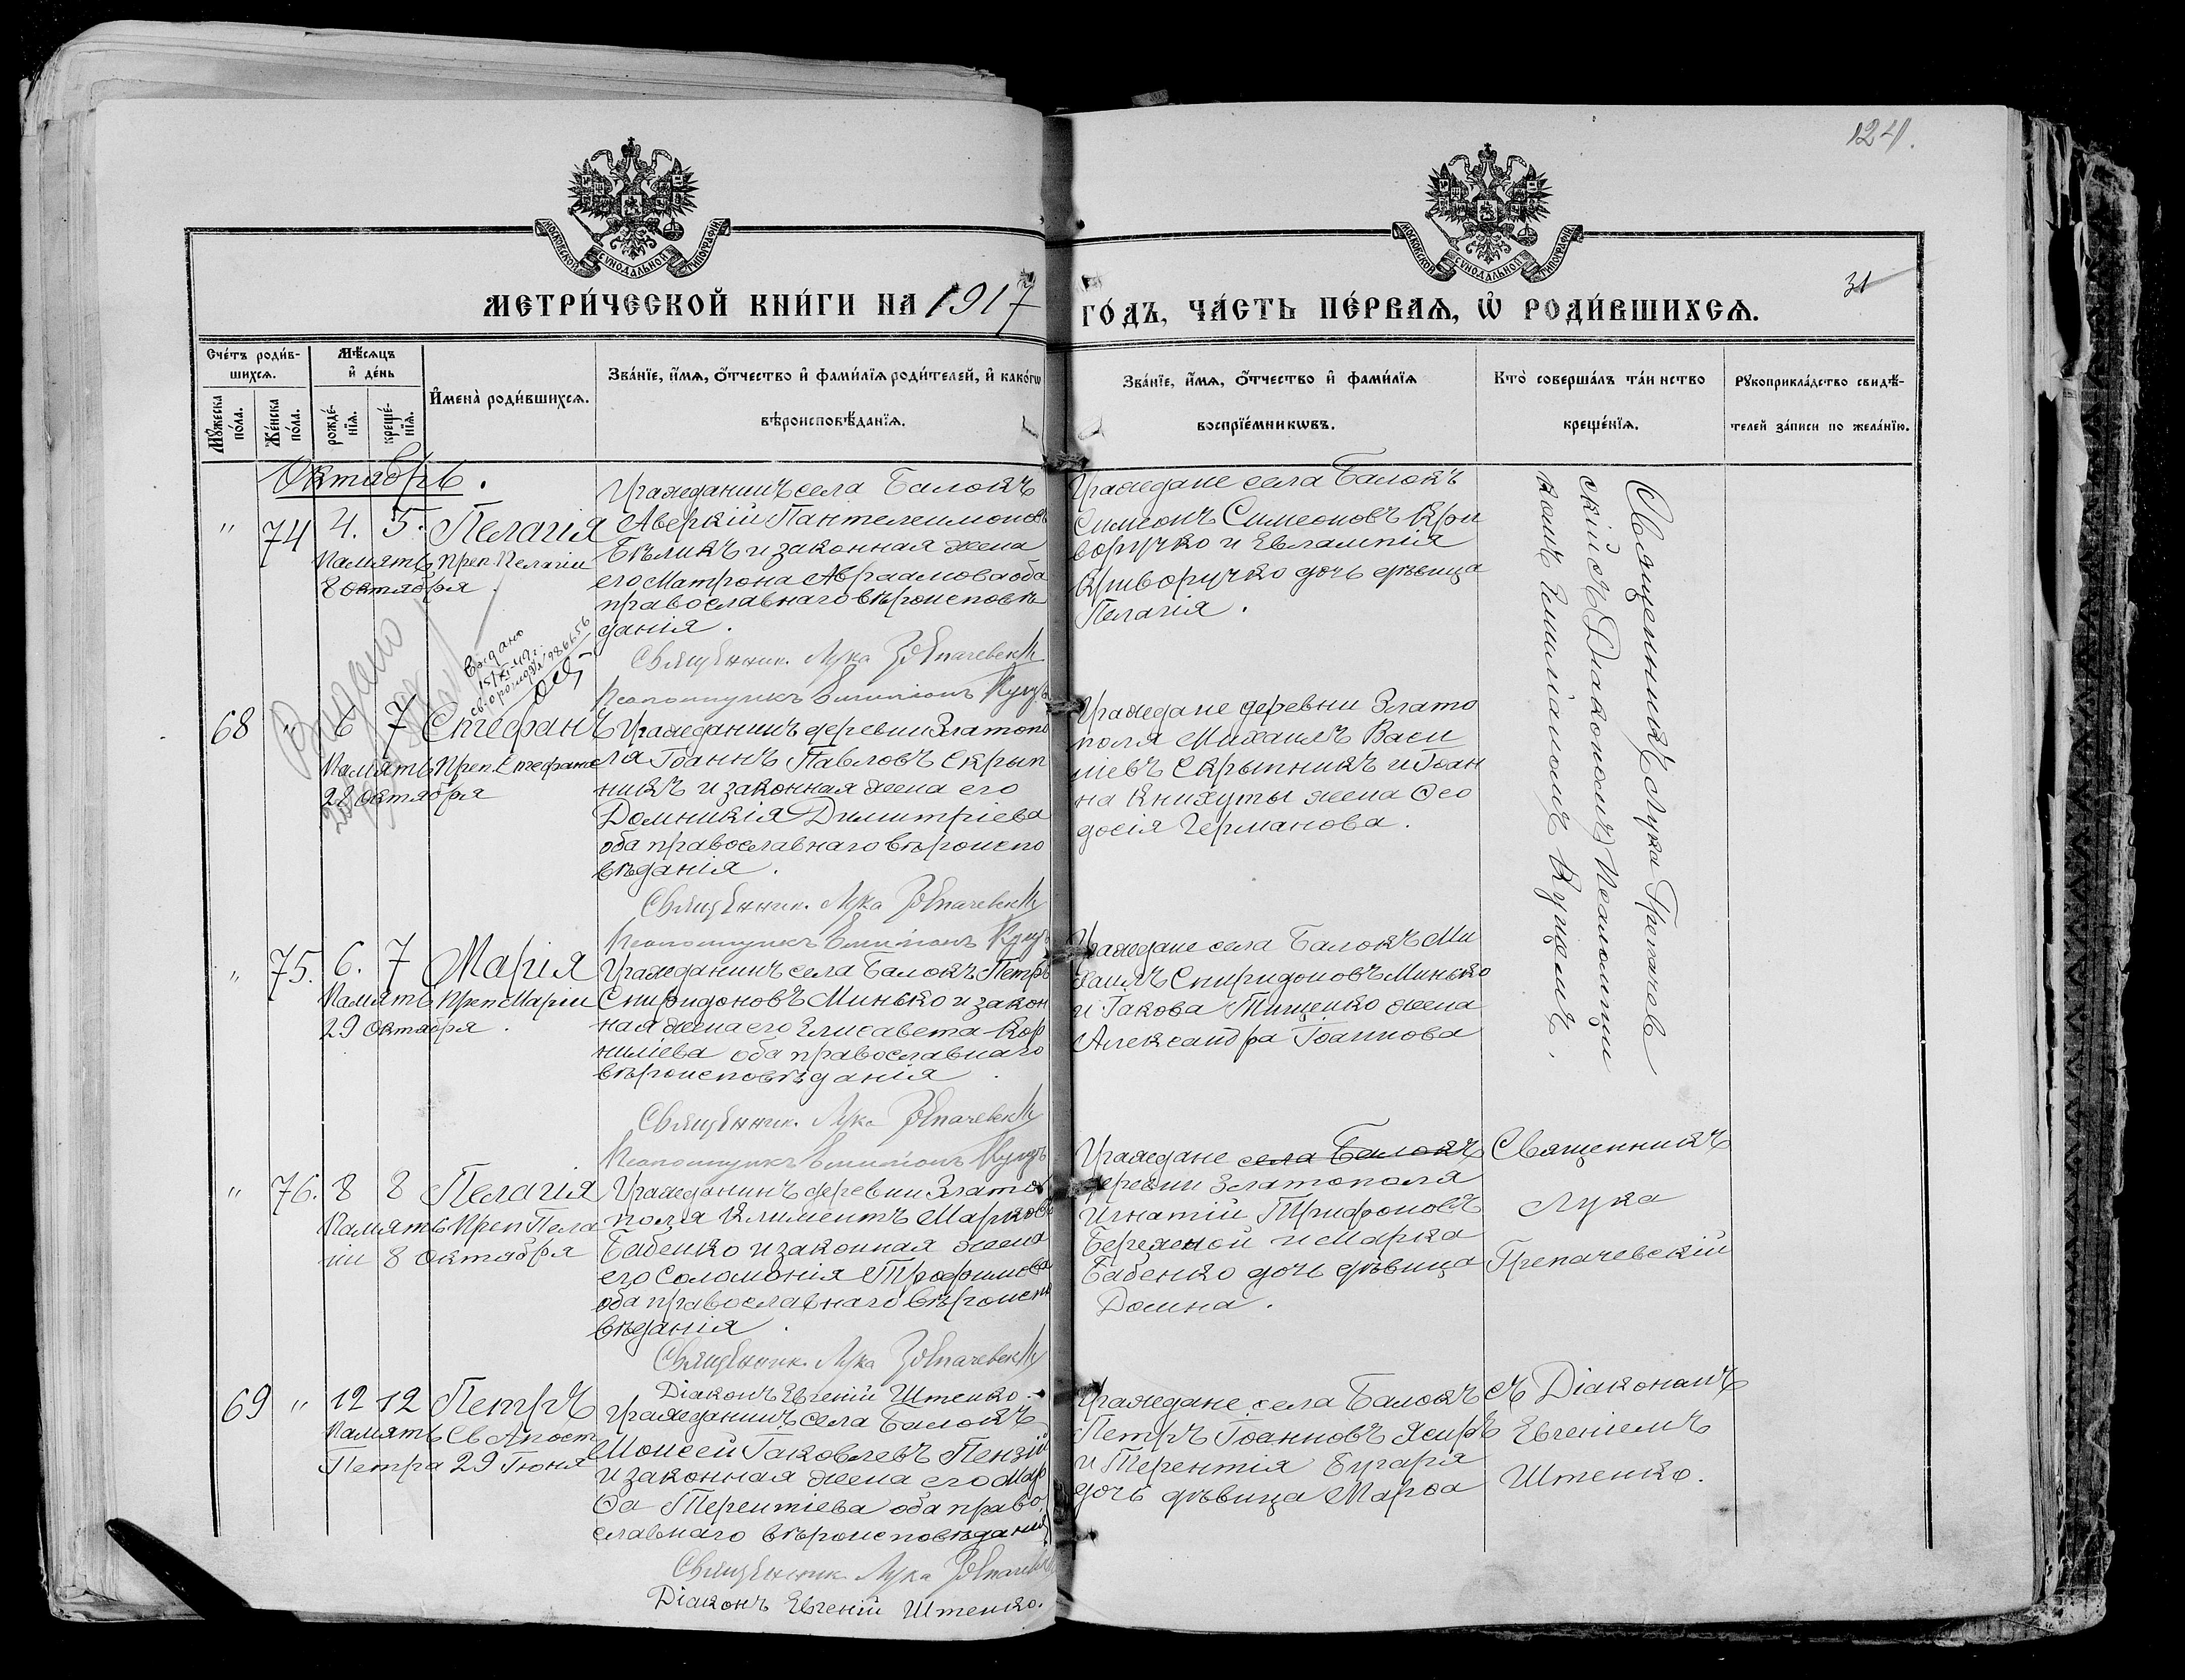 124.
МОСКОВСКОЙ СУНОДАЛЬНОЙ ТИПОГРАФІИ
МОСКОВСКОЙ СУНОДАЛЬНОЙ ТИПОГРАФІИ
31
МЕТРИ́ЧЕСКОЙ КНИ́ГИ НА 1917 ГО́ДЪ, ЧА́СТЬ ПЕ́РВАѦ, Ѡ҆ РОДИ́ВШИХСѦ.
Сче́тъ роди́в-
шихсѧ.
Мꙋ́жеска по́ла.
Же́нска по́ла.
Мѣ́сѧцъ
и҆ де́нь
рожде́-
нїѧ.
креще́-
нїѧ.
И҆мена̀ роди́вшихсѧ.
Зва́нїе, и҆́мѧ, ѻ҆́тчество и҆ фами́лїѧ роди́телей, и҆ како́гѡ
вѣроисповѣ́данїѧ.
Зва́нїе, и҆́мѧ, ѻ҆́тчество и҆ фами́лїѧ
воспрїе́мникѡвъ.
Кто̀ соверша́лъ та́инство
креще́нїѧ.
Рꙋкоприкла́дство свидѣ́-
телей за́писи по жела́нїю.
Октябрь.
" 74 4. 5. Пелагія
Память Преп. Пелагіи
8 октября.
Гражданинъ села Балокъ
Аверкій Пантелеимоновъ
Бѣликъ и законная жена
его Матрона Авраамова оба
православнаго вѣроисповѣ
данія.
Священник. Лука
Граждане села Балокъ
Симеонъ Симеоновъ Кри
воручко и Евлампія
Криворучко дочь дѣвица
Пелагія.
Священникъ Лука Грепачев
скій съ Діакономъ Псаломщи
комъ Куцемъ.
Выдано
Выдано
68 " 6 7 Стефанъ
Память Преп. Стефана
28 октября
Псаломщикъ
Гражданинъ деревни Златопо
ля Іоаннъ Павловъ Скрып
никъ и законная жена его
Домникія Димитріева
оба православнаго вѣроиспо
вѣданія.
Священник. Лука
Псаломщикъ
Граждане деревни Злато
поля Михаилъ Васи
ліевъ Скрыпникъ и Іоан
на Книхуты жена Ѳео
досія Германова.
" 75. 6. 7 Марія
Память Преп Маріи
29 октября.
Гражданинъ села Балокъ Петръ
Спиридоновъ Минько и закон
ная жена его Елисавета Кор
ниліева оба православнаго
вѣроисповѣданія.
Священник. Лука
Псаломщикъ
Граждане села Балокъ Ми
хаилъ Спиридоновъ Минько
и Іакова Тищенко жена
Александра Іоаннова
" 76. 8 8 Пелагія
Память Преп Пела
гіи 8 октября
Гражданинъ деревни Злато
поля Климентъ Марковъ
Бабенко и законная жена
его Соломонія Трофимова
оба православнаго вѣроиспо
вѣданія.
Священник. Лука
Діаконъ Евгеній Штенко.
Граждане села Балокъ
деревни Златополя
Игнатій Трифоновъ
Бережной и Марка
Бабенко дочь дѣвица
Домна.
Священникъ
Лука
Грепачевскій
съ Діакономъ
Евгеніемъ
Штенко.
69 " 12 12 Петръ
Память Св Апост
Петра 29 Іюня
Гражданинъ села Балокъ
Моисей Іаковлевъ Пензій
и законная жена его Мар
ѳа Терентіева оба право
славнаго вѣроисповѣданія
Священник Лука
Діаконъ Евгеній Штенко.
Граждане села Балокъ
Петръ Іоанновъ
и Терентія Бугаря
дочь дѣвица Марѳа